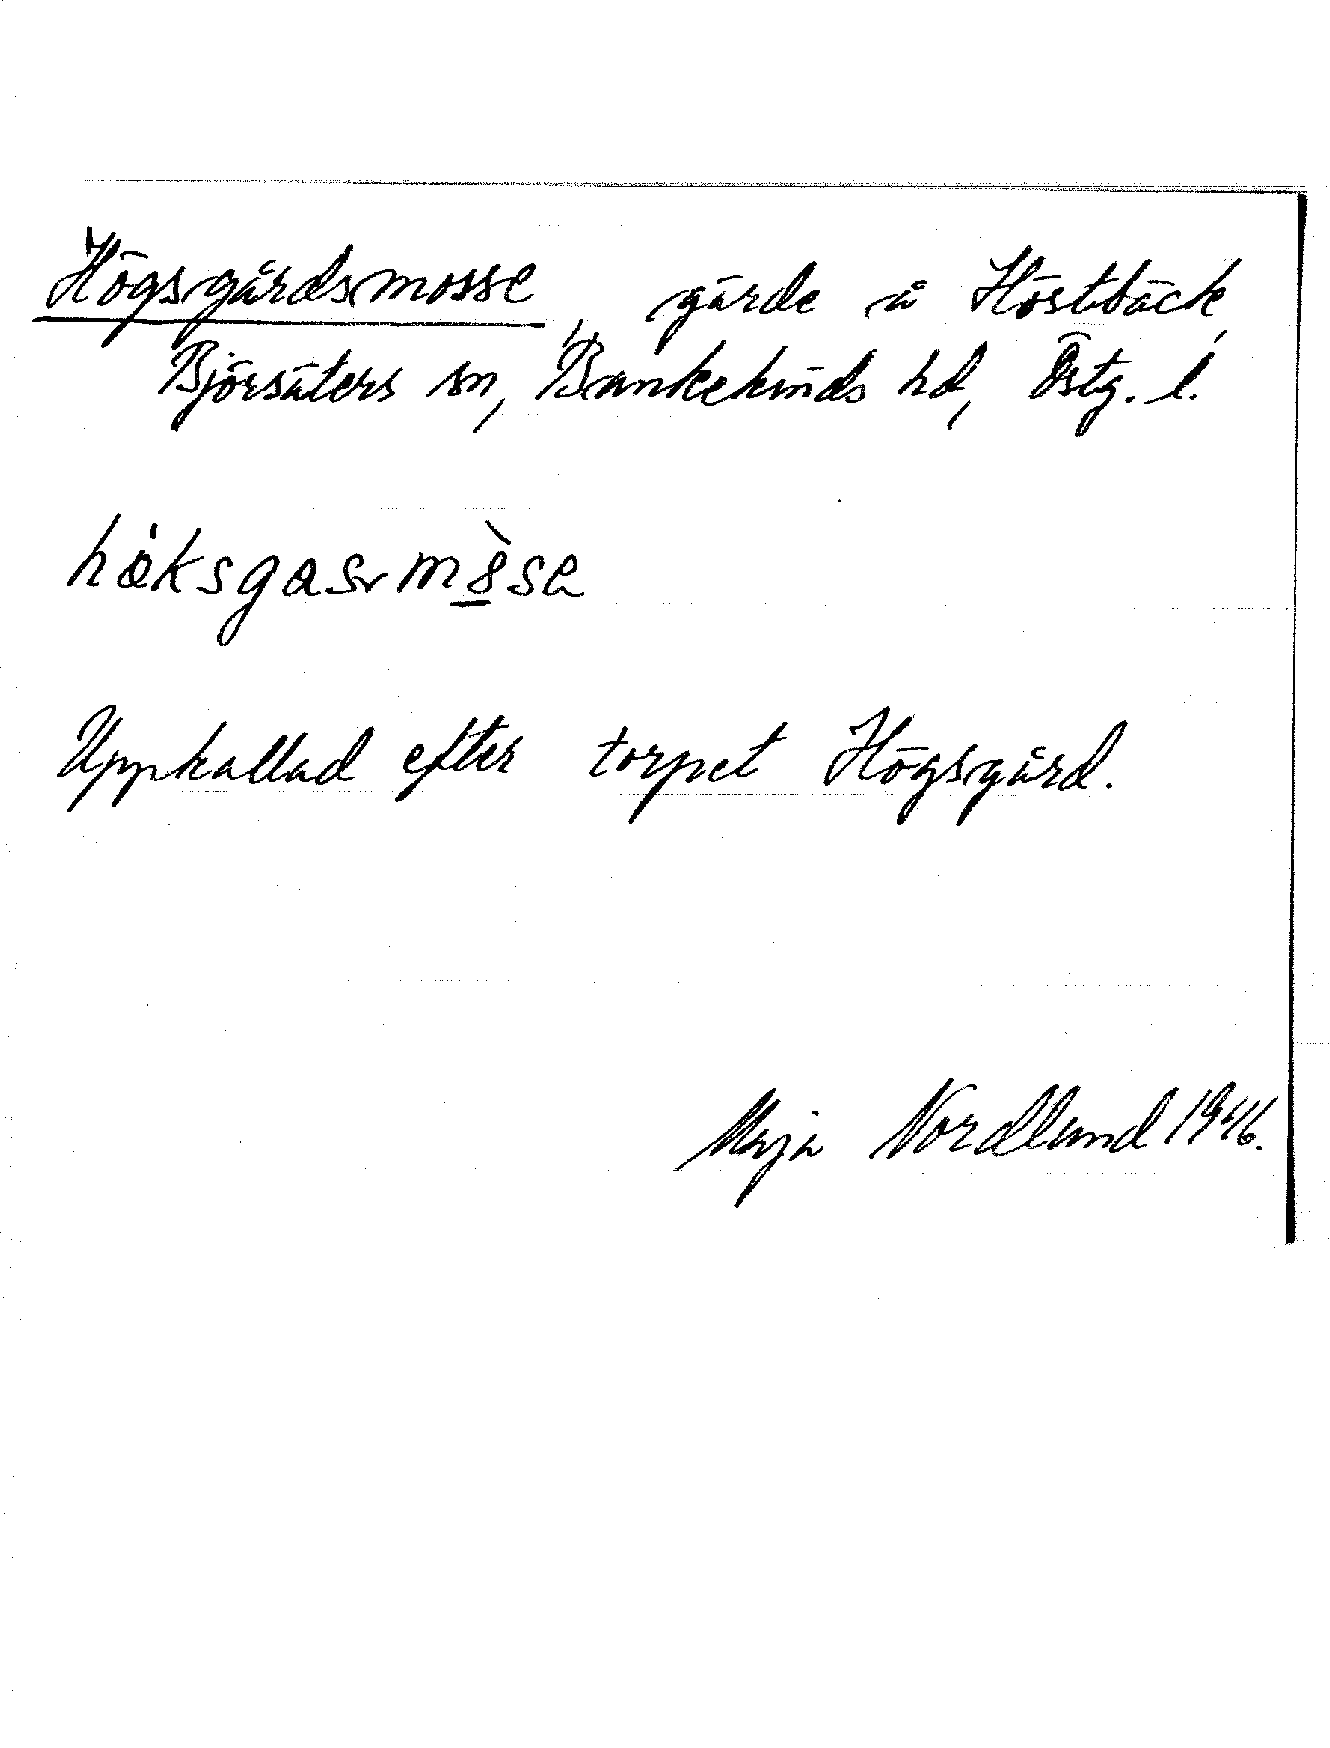 Högsgårdsmosse, gärde å Höstbäck,
Björsäters sn, Bankekinds hd, Östg. l.
Uppkallad efter torpet Högsgård.
Maja Nordlund 1946.